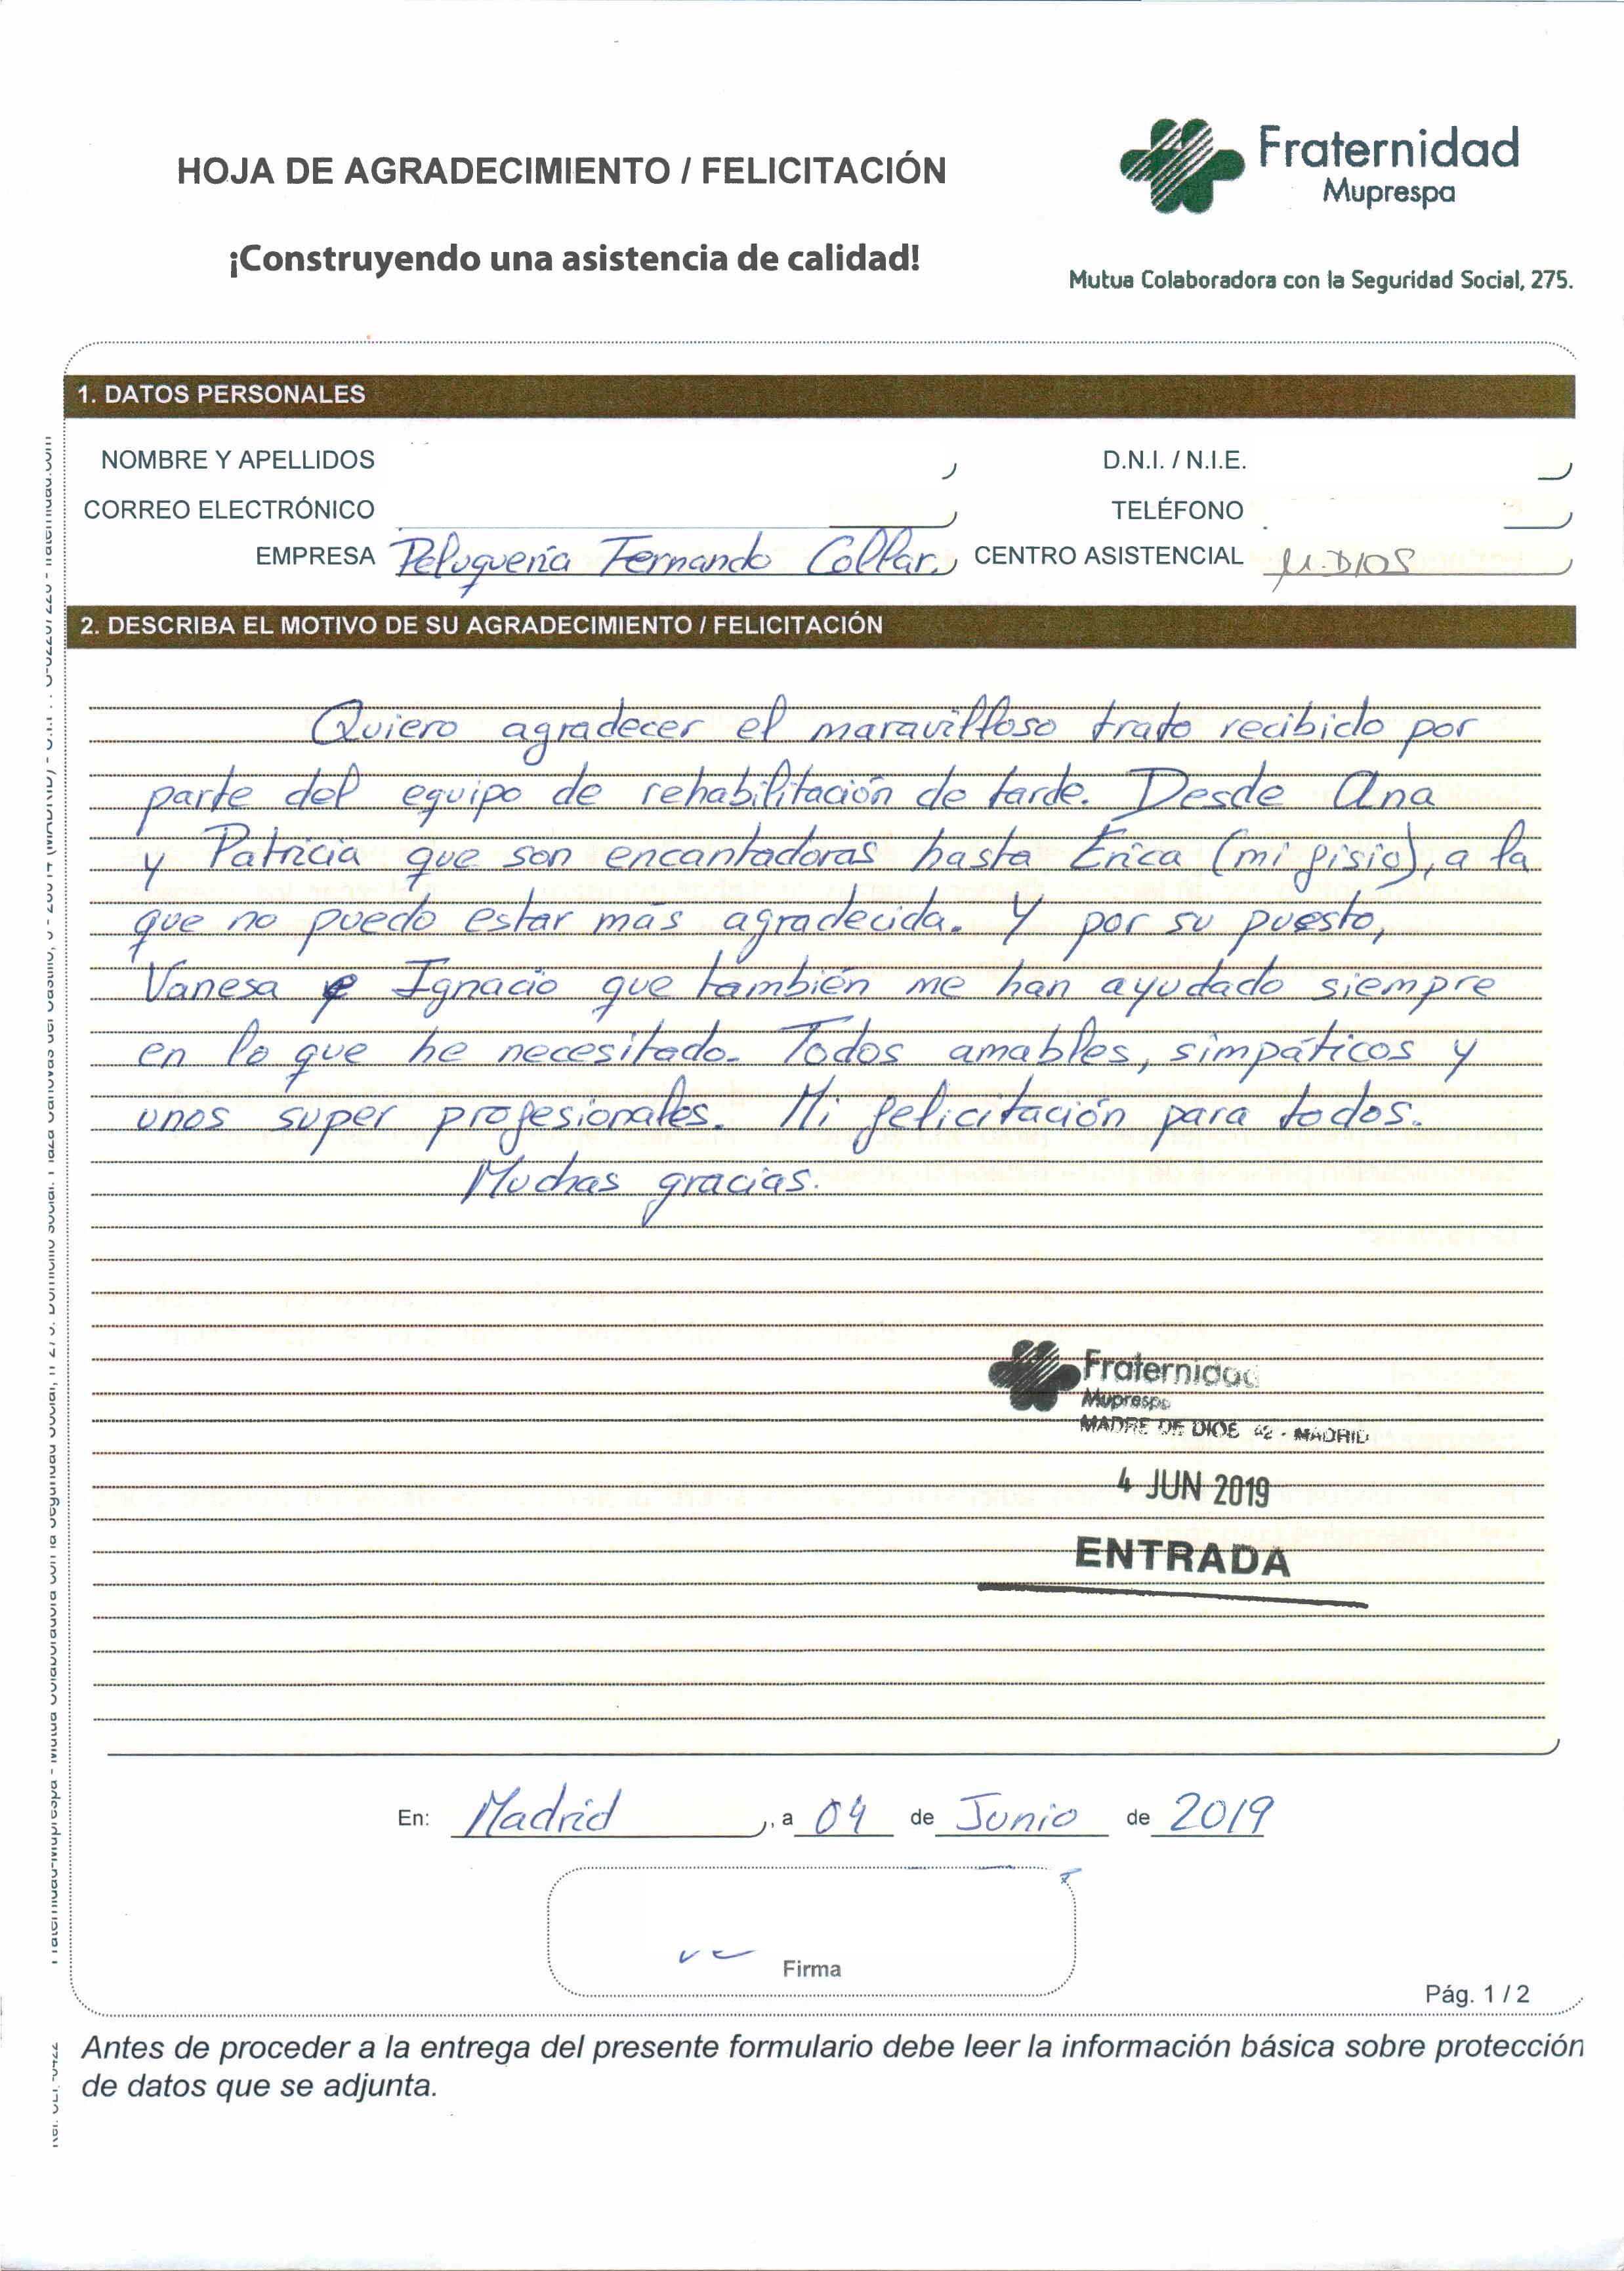 HOJA DE AGRADECIMIENTO / FELICITACIÓN
¡Construyendo una asistencia de calidad!
Fraternidad
Muprespa
Mutua Colaboradora con la Seguridad Social, 275.
1. DATOS PERSONALES
NOMBRE Y APELLIDOS
D.N.I. / N.I.E.
CORREO ELECTRÓNICO
TELÉFONO
EMPRESA Peluquería Fernando Collar.
CENTRO ASISTENCIAL M. DIOS
2. DESCRIBA EL MOTIVO DE SU AGRADECIMIENTO / FELICITACIÓN
Quiero agradecer el maravilloso trato recibido por
parte del equipo de rehabilitación de tarde. Desde Ana
y Patricia que son encantadoras hasta Érica (mi fisio), a la
que no puedo estar más agradecida. Y por su puesto,
Vanesa e Ignacio que también me han ayudado siempre
en lo que he necesitado. Todos amables, simpáticos y
unos super profesionales. Mi felicitación para todos.
Muchas gracias.
Fraternidad
Muprespa
MADRE DE DIOS 42 - MADRID
4 JUN 2019
ENTRADA
En: Madrid, a 04 de Junio de 2019
Firma
Pág. 1 / 2
Antes de proceder a la entrega del presente formulario debe leer la información básica sobre protección
de datos que se adjunta.